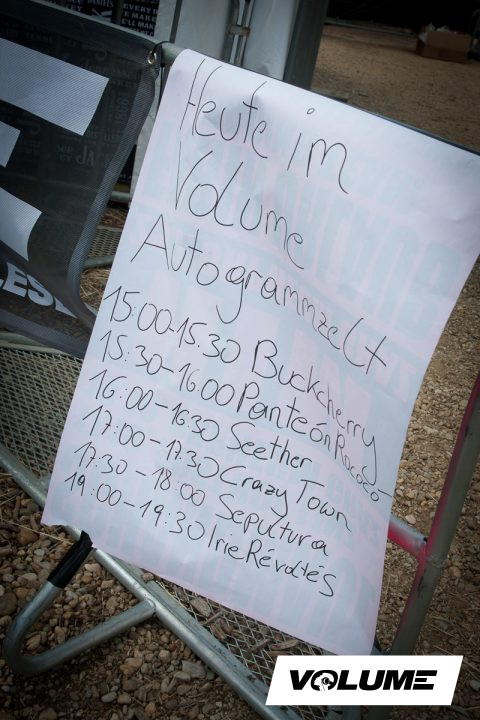 Heute im
Volume
Autogrammzelt
15:00-15:30 Buckcherry
15:30-16:00 Panteón Rococó
16:00-16:30 Seether
17:00-17:30 Crazy Town
17:30-18:00 Sepultura
19:00-19:30 Irie Révoltés
VOLUME